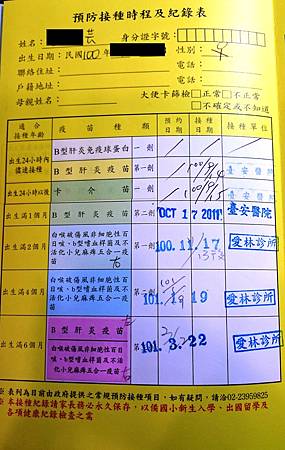 預防接種時程及紀錄表
姓名: 芸 身分證字號:
出生日期:民國100年 性別: 女
聯絡住址: 電話:
戶籍地址: 電話:
母親姓名: 大便卡篩檢□正常□不正常
□不確定或不知道
適合接種年齡 疫苗種類 預約日期 接種日期 接種單位
出生24小時內儘速接種 B型肝炎免疫球蛋白 一劑
B型肝炎疫苗 第一劑 臺安醫院
出生24小時以後 卡介苗 一劑 臺安醫院
出生滿1個月 B型肝炎疫苗 第二劑 OCT 17 2011 臺安醫院
出生滿2個月 白喉破傷風非細胞性百日咳、b型嗜血桿菌及不活化小兒麻痺五合一疫苗 右 第一劑 100.11.17 愛林診所
出生滿4個月 白喉破傷風非細胞性百日咳、b型嗜血桿菌及不活化小兒麻痺五合一疫苗 第二劑 101. 19 愛林診所
出生滿6個月 B型肝炎疫苗 第三劑 101.3.22 愛林診所
白喉破傷風非細胞性百日咳、b型嗜血桿菌及不活化小兒麻痺五合一疫苗
※ 表列為目前由政府提供之常規預防接種項目,如有疑問,請洽02-23959825
※ 本接種紀錄請家長務必永久保存,以備國小新生入學、出國留學及
各項健康紀錄檢查之需